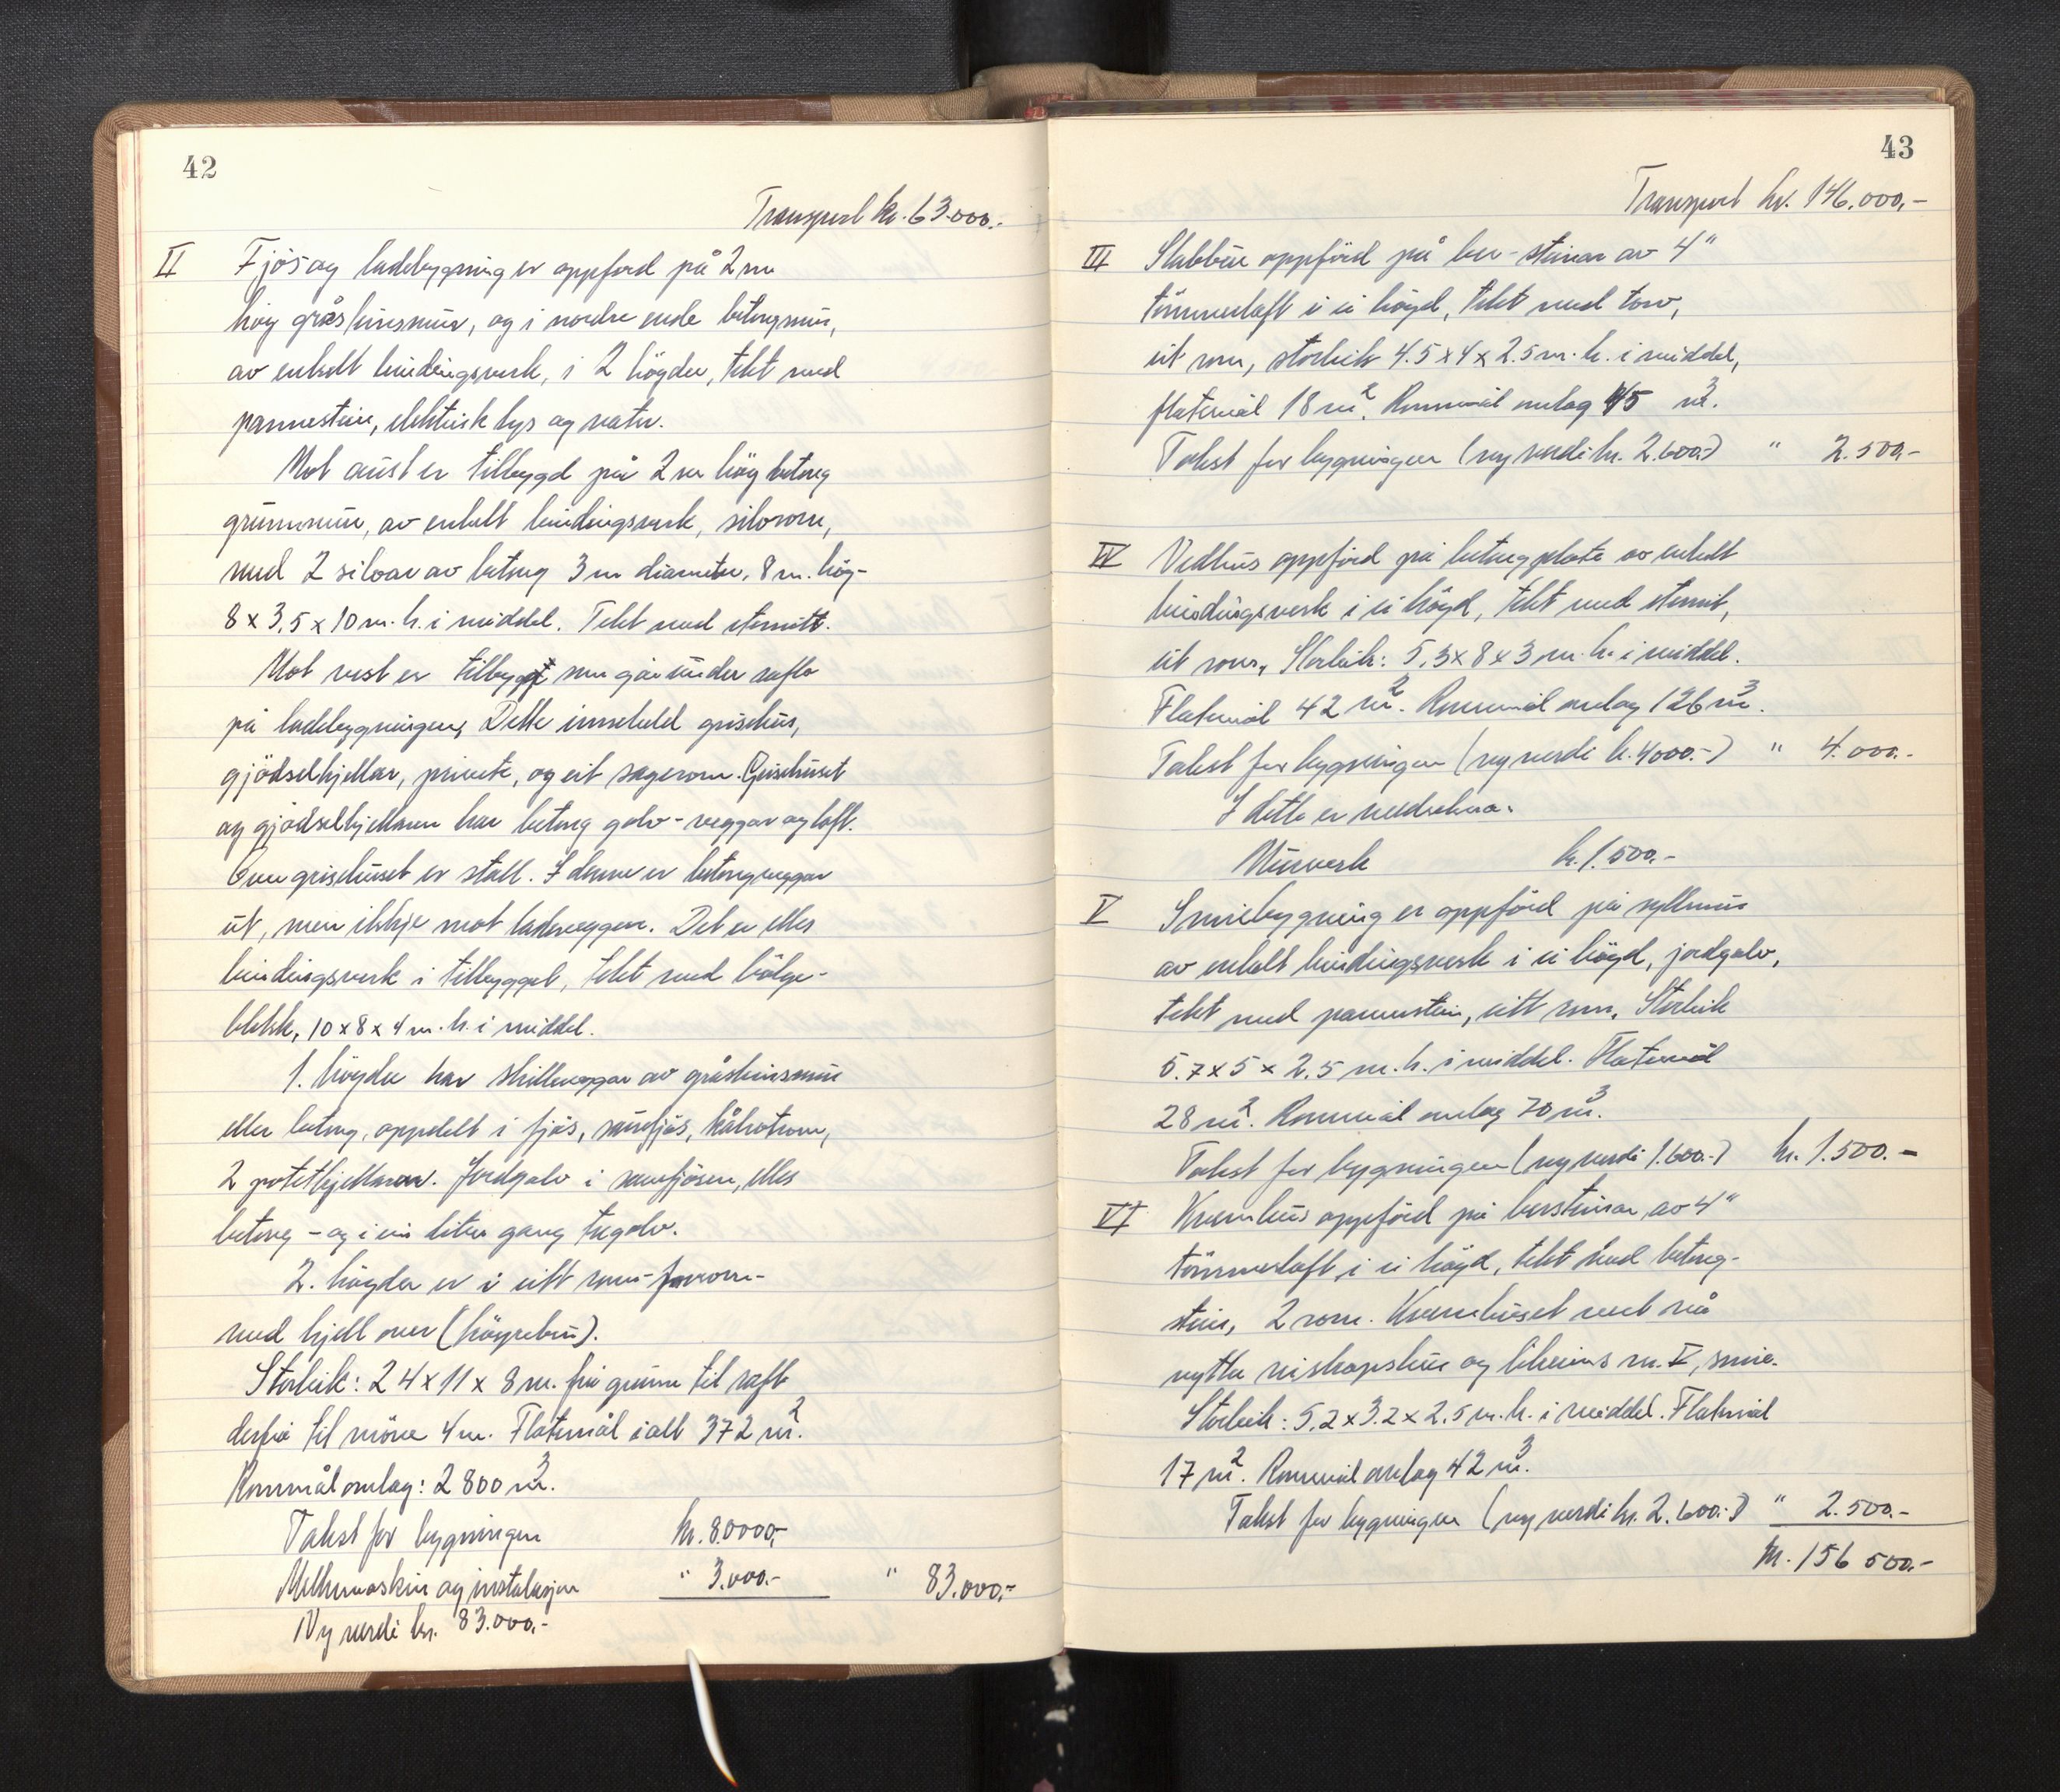 42
Transport kr. 63.000.-
II Fjös og ladebygning er oppförd på 2 m
høg gråsteinsmur, og i nordre ende betongmur,
av enkelt bindingsverk, i 2 högder, tekt med
pannestein, elektrisk lys og vatn.
Mot aust er tilbygd på 2 m høg betong
grunnmur, av enkelt bindingsverk, silorom,
med 2 siloar av betong 3 m diameter, 8 m. høg-
8 x 3,5 x 10 m. h. i middel. Tekt med eternitt.
Mot vest er tilbygg som går under rafto
på ladebygningen, Dette inneheld grisehus,
gjödselkjellar, privete, og eit sagerom. Grisehuset
og gjödselkjellaren har betong golv - veggar og loft.
Over grisehuset er stall. I denne er betongveggar
ut, men ikkje mot ladeveggen. Det er elles
bindingsverk i tilbygget, tekt med bölge-
blekk, 10 x 8 x 4 m. h. i middel.
1. högder har skilleveggar av gråsteinsmur
eller betong, oppdelt i fjös, sauefjös, kålrotrom,
2 potetkjellarar. Jordgolv i sauefjösen, elles
betong - og i ein liten gang tregolv.
2. högder er i eitt rom - forrom -
med hjell over (höyrebru).
Storleik: 24 x 11 x 8 m. frå grunn til raft
derfrå til möne 4 m. Flatemål i alt 372 m2.
Rommål omlag: 2800 m3.
Takst for bygningen kr. 80000,-
Melkemaskin og instalasjon " 3.000.- " 83.000,-
Ny verdi kr. 83.000,-
43
Transport kr. 146.000,-
III Stabbur oppförd på ber-steinar av 4"
tömmerlaft i ei högd, tekt med torv,
eit rom, storleik 4.5 x 4 x 2.5 m. h. i middel,
flatemål 18 m2. Rommål omlag 45 m3.
Takst for bygningen (ny verdi kr. 2.600.-) " 2.500,-
IV Vedhus oppförd på betongplate av enkelt
bindingsverk i ei högd, tekt med eternit,
eit rom, Storleik: 5,3 x 8 x 3 m. h. i middel.
Flatemål 42 m2. Rommål omlag 126 m3.
Takst for bygningen (ny verdi k. 4000.-) " 4.000.-
I dette er medrekna.
Murverk k. 1.500.-
V Smiebygning er oppförd på syllmur
av enkelt bindingsverk i ei högd, jordgolv,
tekt med pannestein, eitt rom, Storleik
5.7 x 5 x 2.5 m. h. i middel. Flatemål
28 m2. Rommål omlag 70 m3.
Takst for bygningen (ny verdi 1.600.-) kr. 1.500.-
VI Kvernhus oppförd på bersteinar av 4"
tömmerlaft i ei högd, tekt med betong-
stein, 2 rom. Kvernhuset vert nå
nytta reiskapshus og likeeins nr. V, smie.
Storleik: 5.2 x 3.2 x 2.5 m. h. i middel. Flatemål
17 m2. Rommål omlag 42 m3.
Takst for bygningen (ny verdi kr. 2.600.-) " 2.500.-
kr. 156 500.-